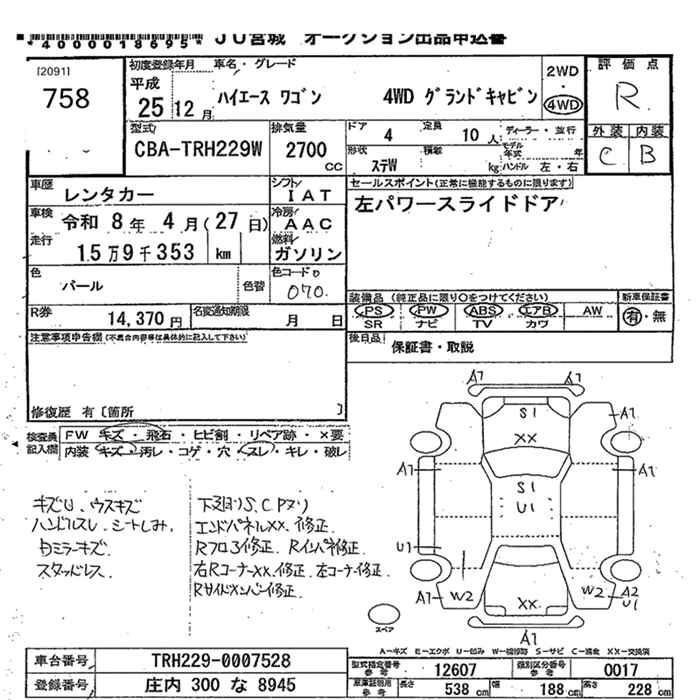 *4000018695* JU宮城 オークション出品申込書
[2091]
758
初度登録年月 車名・グレード
平成 25 12月 ハイエース ワゴン 4WD グランドキャビン
2WD 4WD
評価点 R
型式 CBA-TRH229W
排気量 2700 CC
ドア 4 定員 10人 ディーラー・並行
形状 ステW 積載 kg モデル年式 年 ハンドル 左・右
外装 内装
C B
車歴 レンタカー
シフト IAT
車検 令和 8年 4月(27日)
冷房 AAC
走行 15万9千353 km
燃料 ガソリン
セールスポイント(正常に機能するものに限ります)
左パワースライドドア
色 パール 色替
色コードNo 070
R券 14,370円 名変通知期限 月 日
装備品 (純正品に限り○をつけてください) 新車保証書
PS PW ABS エアB AW 有・無
SR ナビ TV カワ
注意事項申告欄 (不具合内容等は具体的に記入して下さい)
後日品 保証書・取説
修復歴 有〔箇所 〕
検査員記入欄 FW キズ・飛石・ヒビ割・リペア跡・×要
内装 キズ・汚レ・コゲ・穴・スレ・キレ・破レ
キズU、ウスキズ
ハンドルスレ、シートしみ、
Dミラーキズ
スタッドレス
下廻りS、C、Pヌリ
エンドパネルXX、修正、
Rフロア修正、Rインパネ修正、
右RコーナーXX、修正、左コーナー修正、
Rサイドメンバー修正、
A1 A1
S1
XX
A1
A1 A1
S1
U1
U1
W2 W2
A1 A2
U1
XX
A1 A1
スペア
A－キズ E－エクボ U－凹み W－補修跡 S－サビ C－腐食 XX－交換済
車台番号 TRH229-0007528
登録番号 庄内 300 な 8945
型式指定番号 参考 12607 類別区分番号 参考 0017
車庫証明用 参考 長さ 538 cm 幅 188 cm 高さ 228 cm